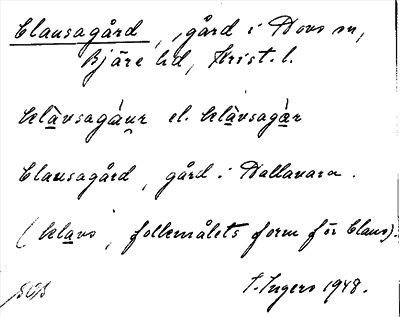 Clausagård, gård i Hovs sn,
Bjäre hd, Krist. l.
klàvsagáųr el. klàvsagàr
Clausagård, gård i Hallavara.
(klavs, folkmålets form för Claus).
I. Ingers 1948.